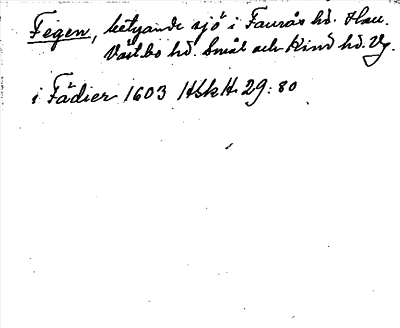 Fegen, betyande sjö i Faurås hd. Hall.
Västbo hd. Smål och Kind hd. Vg.
i Fädier 1603 HSkH. 29:80